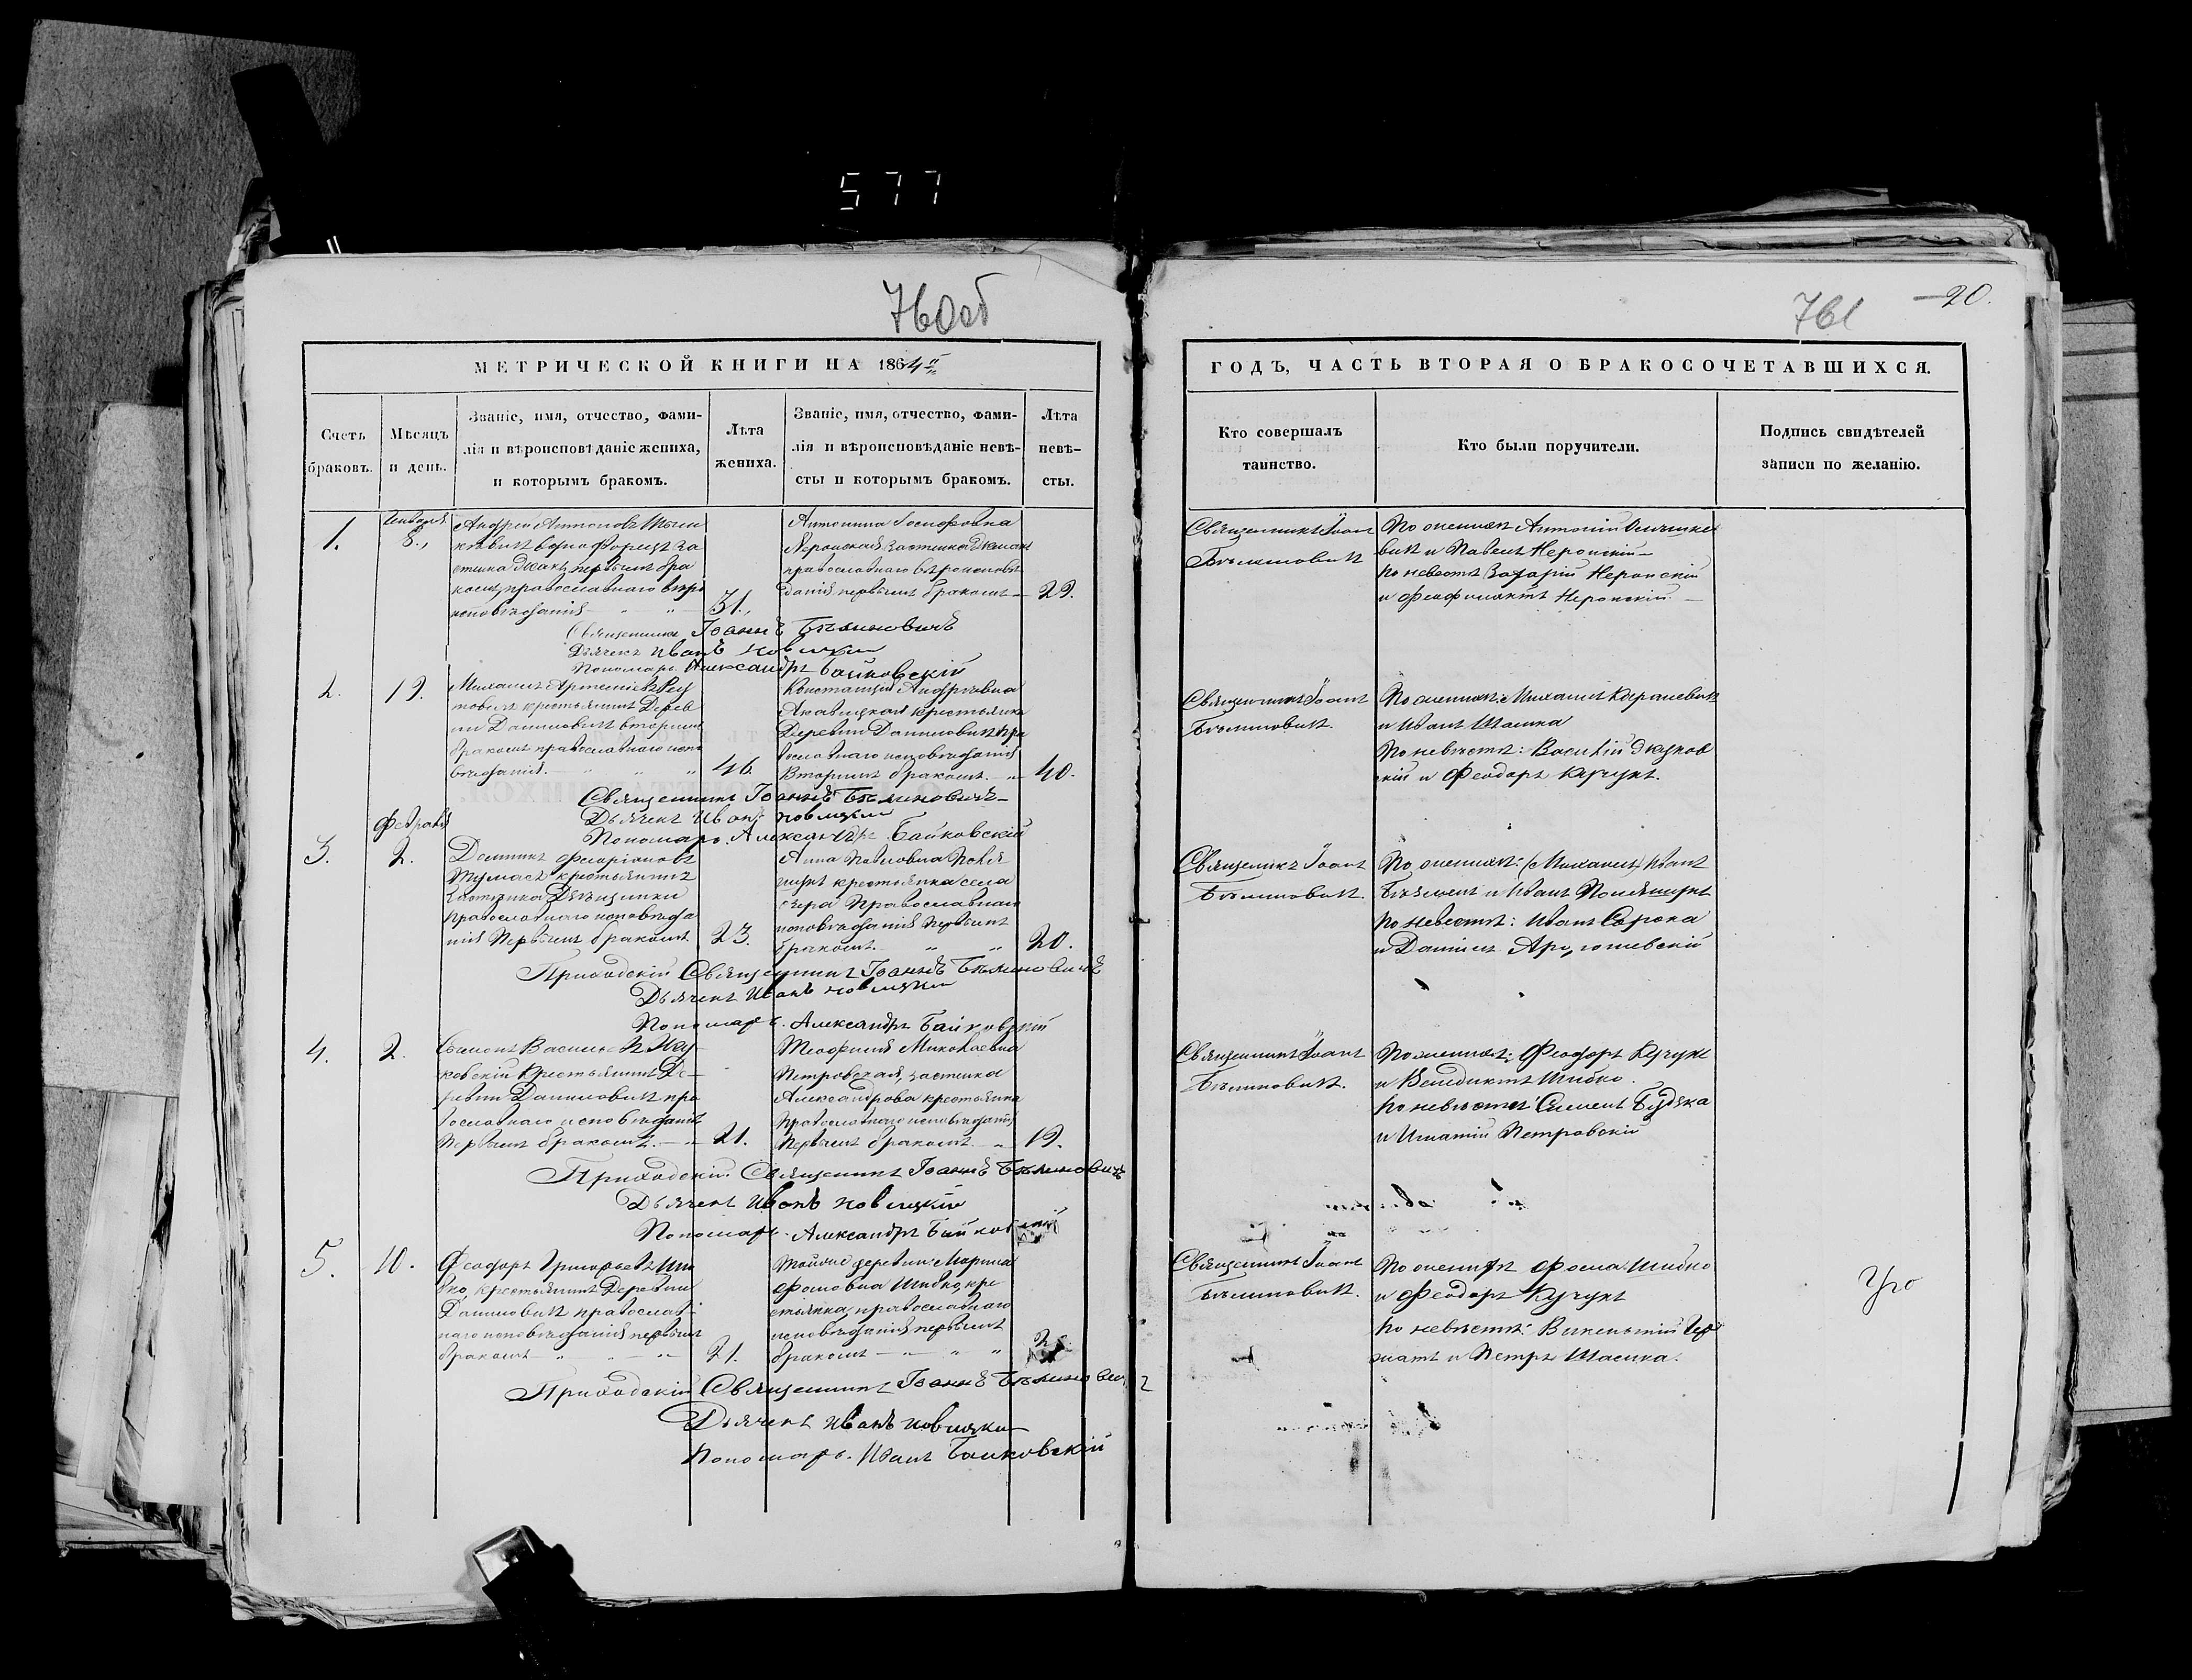 577
760об
761
20.
МЕТРИЧЕСКОЙ КНИГИ НА 1864
ГОДЪ, ЧАСТЬ ВТОРАЯ О БРАКОСОЧЕТАВШИХСЯ.
Счетъ
браковъ.
Мѣсяцъ
и день.
Званіе, имя, отчество, фами-
лія и вѣроисповѣданіе жениха,
и которымъ бракомъ.
Лѣта
жениха.
Званіе, имя, отчество, фами-
лія и вѣроисповѣданіе невѣ-
сты и которымъ бракомъ.
Лѣта
невѣ-
сты.
Кто совершалъ
таинство.
Кто были поручители.
Подпись свидѣтелей
записи по желанію.
1.
Января
8.,
Андрей Антоновъ
первымъ бра
комъ, православнаго вѣро
исповѣданія
31.,
Антонина Іосифовна
Неронская застѣнка
православнаго вѣроисповѣ
данія первымъ бракомъ
29.
Священникъ Іоанъ
Бѣлиновичъ
По женихѣ Антоній
вичъ и Павелъ Неронскій
по невѣстѣ Захарій Неронскій
и Феофилактъ Неронскій.
Священникъ Іоаннъ Бѣлиновичъ
Дьячекъ Иванъ Новицкій
Пономарь Александръ Байковскій
2.
19.
Михаилъ Артеміевъ
крестьянинъ Дерев
ни Даниловичъ вторымъ
бракомъ православнаго испо
вѣданія.
46.
Констанція Андреевна
крестьянка
Деревни Даниловичъ пра
вославнаго исповѣданія
вторымъ бракомъ.
40.
Священникъ Іоанъ
Бѣлиновичъ.
По женихѣ: Михаилъ
и Иванъ Шасика
По невѣстѣ: Василій
скій и Феодоръ Кучукъ.
Священникъ Іоаннъ Бѣлиновичъ
Дьячекъ Иванъ Новицкій
Пономарь. Александръ Байковскій
Февраля
3.
2.
Доминикъ Флоріановъ
Тумасъ крестьянинъ
православнаго исповѣда
нія первымъ бракомъ
23.
Анна Павловна
крестьянка села
православнаго
исповѣданія первымъ
бракомъ.
20.
Священикъ Іоанъ
Бѣлиновичъ.
По женихѣ: Михаилъ Иванъ
и Иванъ
По невѣстѣ: Иванъ Сорока
и Даніилъ
Приходскій Священникъ Іоаннъ Бѣлиновичъ
Дьячекъ Иванъ Новицкій
Пономарь. Александръ Байковскій
4.
2.
Василь
ковскій крестьянинъ Де-
ревни Даниловичъ пра
вославнаго исповѣданія
первымъ бракомъ.
21.
Теофилія Миколаевна
Петровская, застѣнка
Александрова крестьянка
православнаго исповѣданія
первымъ бракомъ.
19.
Священникъ Іоанъ
Бѣлиновичъ.
По женихѣ: Феодоръ Кучукъ
и Венедиктъ Шибко.
По невѣстѣ: Семенъ Будька
и Игнатій Петровскій
Приходскій Священникъ Іоаннъ Бѣлиновичъ
Дьячекъ Иванъ Новицкій
Пономарь. Александръ Байковскій
5.
10.
Феодоръ Григорьевъ Ши
бко, крестьянинъ Деревни
Даниловичъ православ-
наго исповѣданія первымъ
бракомъ
21.
Тойже деревни Марина
Фомовна Шибко, кре
стьянка, православнаго
исповѣданія первымъ
бракомъ
Священникъ Іоанъ
Бѣлиновичъ.
По женихѣ Фома Шибко
и Феодоръ Кучукъ
По невѣстѣ: Викентій
и Петръ Шасика.
Приходскій Священникъ Іоаннъ Бѣлиновичъ
Дьячекъ Иванъ Новицкій
Пономарь. Иванъ Байковскій